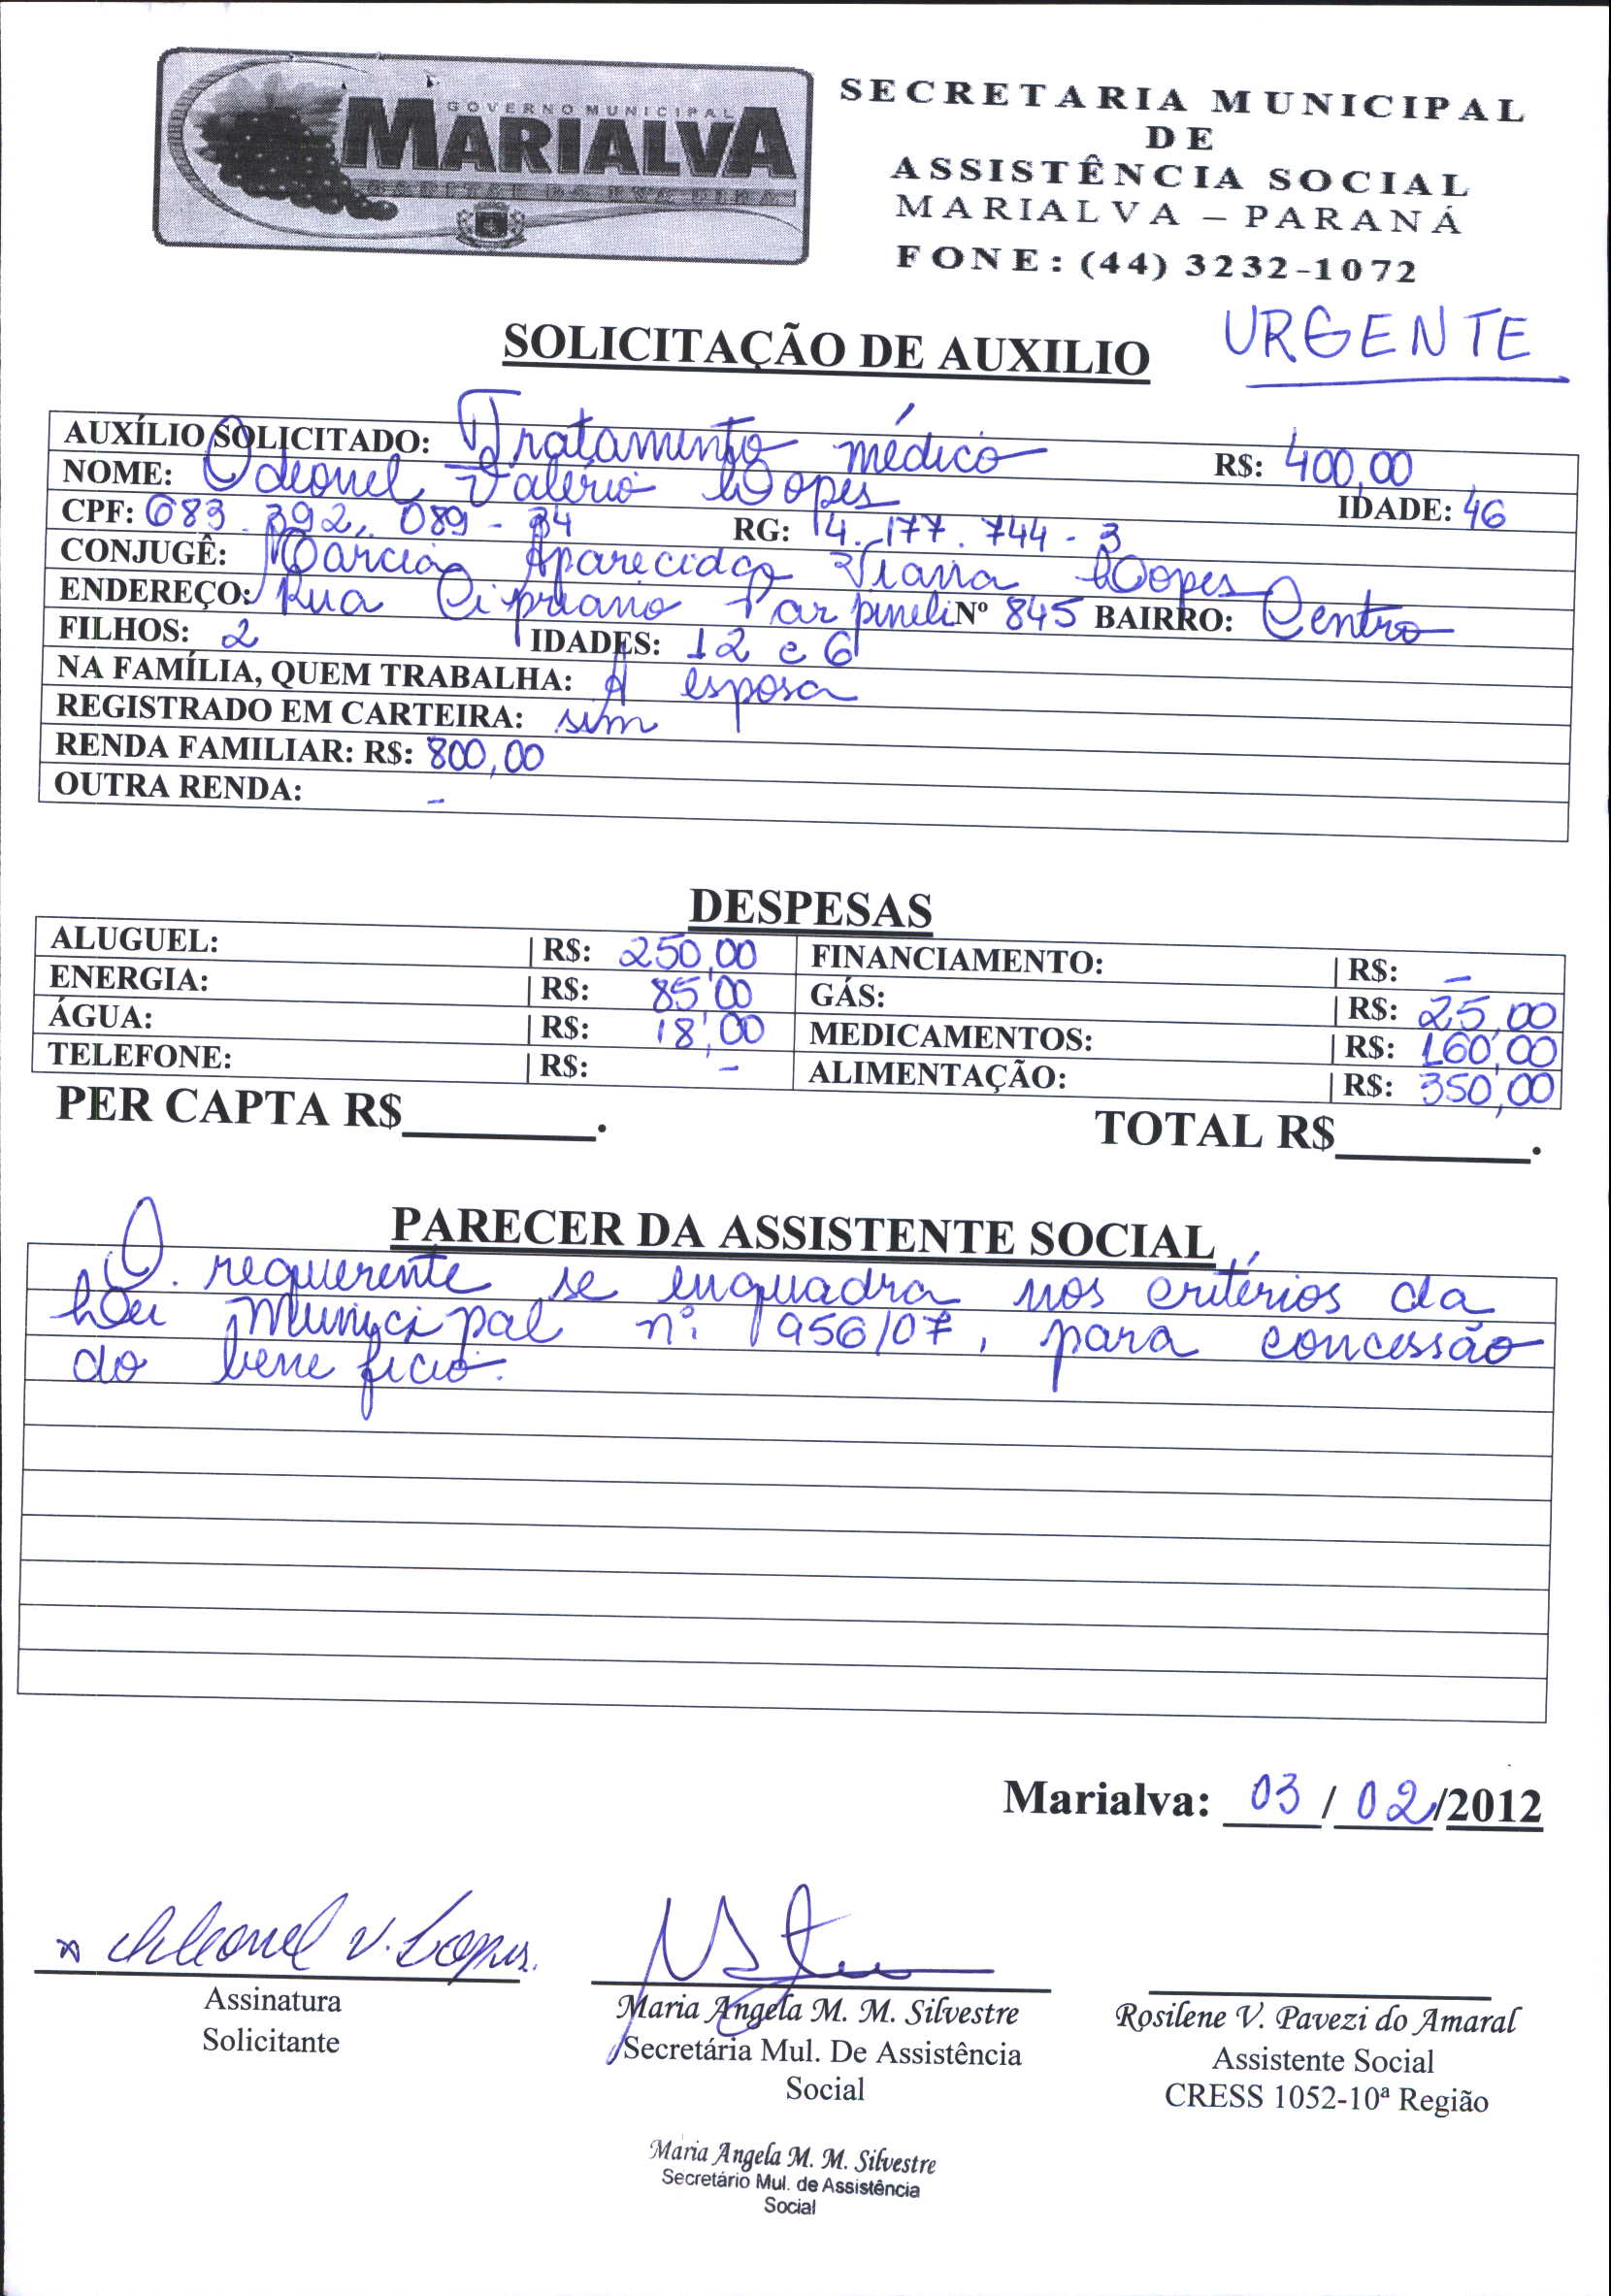 GOVERNO MUNICIPAL
MARIALVA
CAPITAL DA UVA FINA
SECRETARIA MUNICIPAL
DE
ASSISTÊNCIA SOCIAL
MARIALVA – PARANÁ
FONE: (44) 3232-1072
SOLICITAÇÃO DE AUXILIO URGENTE
AUXÍLIO SOLICITADO: Tratamento médico R$: 400,00
NOME: Odeonel Valério Lopes IDADE: 46
CPF: 683.392.089-34 RG: 4.177.744-3
CONJUGÊ: Marcia Aparecida Viana Lopes
ENDEREÇO: Rua Cipriano Parpineli Nº 845 BAIRRO: Centro
FILHOS: 2 IDADES: 12 e 6
NA FAMÍLIA, QUEM TRABALHA: A esposa
REGISTRADO EM CARTEIRA: sim
RENDA FAMILIAR: R$: 800,00
OUTRA RENDA: -
DESPESAS
ALUGUEL: | R$: 250,00 FINANCIAMENTO: | R$: -
ENERGIA: | R$: 85,00 GÁS: | R$: 25,00
ÁGUA: | R$: 18,00 MEDICAMENTOS: | R$: 160,00
TELEFONE: | R$: - ALIMENTAÇÃO: | R$: 350,00
PER CAPTA R$________. TOTAL R$________.
PARECER DA ASSISTENTE SOCIAL
O requerente se enquadra nos critérios da
Lei Municipal nº 956/07, para concessão
do beneficio.
Marialva: 03/02/2012
x Odeonel V. Lopes.
Assinatura
Solicitante
Maria Angela M. M. Silvestre
Secretária Mul. De Assistência
Social
Rosilene V. Pavezi do Amaral
Assistente Social
CRESS 1052-10ª Região
Maria Angela M. M. Silvestre
Secretário Mul. de Assistência
Social